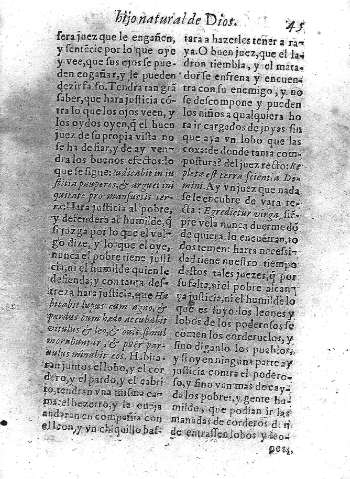 hijo natural de Dios.
45
sera juez que le engañen,
y sentẽcie por lo que oye
y vee, que sus ojos se pue-
den engañar, y le pueden
dezir falso. Tendra tan grã
saber, que hara justicia cõ-
tra lo que los ojos veen, y
los oydos oyen, q̃ el buen
juez de su propia vista no
se ha de fiar, y de ay ven-
dra los buenos efectos: lo
que se sigue: iudicabit in iu
stitia pauperes, & arguet in
quitate pro mansuetis ter-
ræ: Hara justicia al pobre,
y defendera al humilde, q̃
si juzga por lo que el vul-
go dize, y lo que el oye,
nunca el pobre tiene justi
cia, ni el humilde quien le
defienda; y con tanta des-
treza hara justicia, que Ha
bitabit lupus cum agno, &
pardus cum hædo accubabit
vitulus & leo, & ouis simul
morabuntur, & puer par-
uulus minabit eos. Habita-
ran juntos el lobo, y el cor
dero, y el pardo, y el cabri
to, tendran vna misma ca-
ma: el bezerro, y la oueja
andaran en compañia con
el leon, y vn chiquillo bas-
tara a hazerles tener a ra-
ya. O buen juez, que el la-
dron tiembla, y el mata-
dor se enfrena y encuen-
tra con su enemigo, y no
se descompone y pueden
los niños a qualquiera ho
ra ir cargados de joyas sin
que aya vn lobo que las
coxa: de donde tanta com
postura? del juez recto: Re
pleta est terra scientia Do-
mini. Ay vn juez que nada
se le encubre de vara re-
cta: Egredietur virga, siẽ-
pre vela nunca duerme dõ
de quiera lo encuerran, to
dos temen: harta necessi-
dad tiene nuestro tiempo
destos tales juezes, q̃ por
su falta, ni el pobre alcan-
ça justicia, ni el humilde lo
que es suyo: los leones y
lobos de los poderosos, se
comen los corderuelos, y
sino diganlo los pueblos,
y si oy en ninguna parte ay
justicia contra el podero-
so, y sino van mas de cay-
da los pobres, y gente hu-
milde, que podian ir las
manadas de corderos d: si
de entrassen lobos y leo-
pesa.